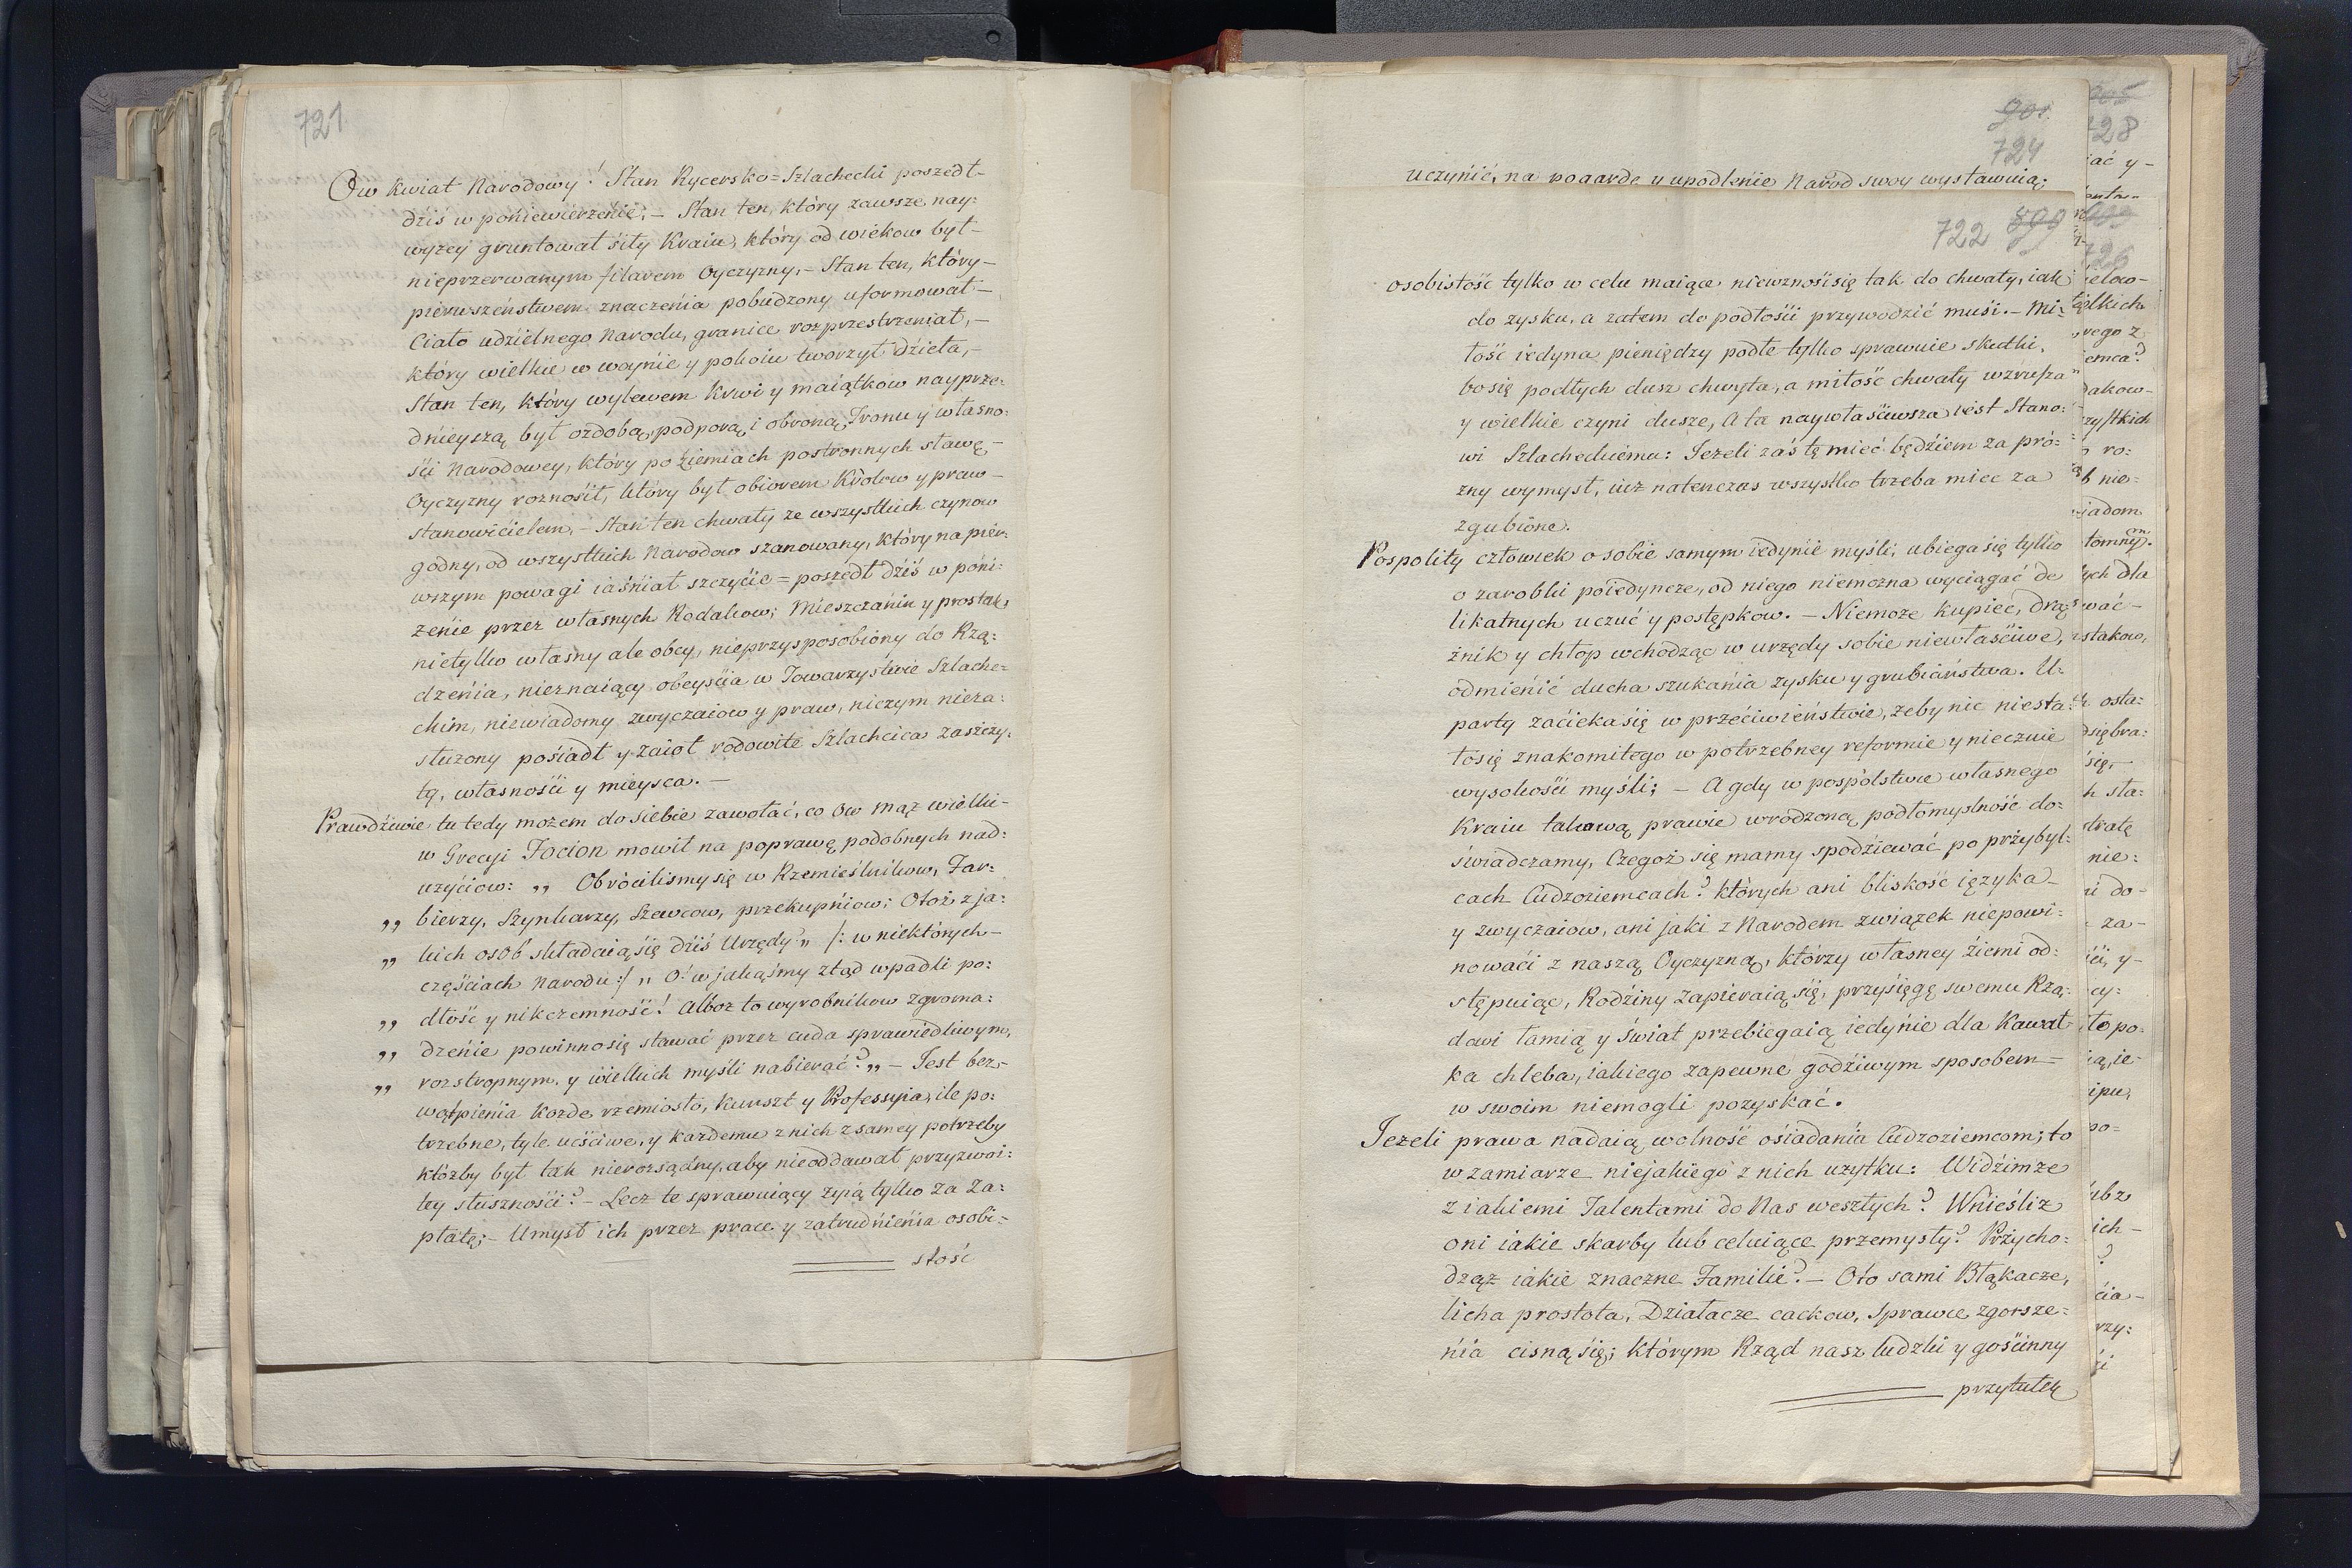 721
Ow kwiat Narodowy! Stan Rycersko=Szlachecki poszedł-
dziś w poniewierzenie; – Stan ten, który zawsze nay:
wyzey gruntował siły Kraiu, który od wiekow był –
nieprzerwanym filarem Oyczyzny, – Stan ten, który –
pierwszeństwem znaczenia pobudzony uformował –
Ciało udzielnego Narodu, granice rozprzestrzeniał, –
który wielkie w woynie y pokoiu tworzył dzieła, –
Stan ten, który wylewem krwi y maiątkow nayprze:
dnieyszą był ozdobą, podporą, i obroną, Tronu y własno:
ści Narodowey, który po ziemiach postronnych sławę –
Oyczyzny roznosił, który był obiorem Królow y praw –
stanowicielem, – Stan ten chwały ze wszystkich czynow
godny, od wszystkich Narodow szanowany, który na pier:
wszym powagi iaśniał szczycie = poszedł dziś w poni:
żenie przez własnych Rodakow; Mieszczanin y prostak,
nietylko własny ale obcy, nieprzysposobiony do Rzą:
dzenia, nieznaiący obeyścia w Towarzystwie Szlache:
ckim, niewiadomy zwyczaiow y praw, niczym nieza:
służony posiadł y zaioł rodowite Szlachcica zaszczy:
ty, własności y mieysca. –
Prawdziwie tu tedy możem do siebie zawołać, co Ow mąż wielki –
w Grecyi Focion mowił na poprawę podobnych nad:
użyciow: „ Obrócilismy się w Rzemieślnikow, Far:
„ bierzy, Szynkarzy, Szewcow, przekupniow; Otoż z ja:
„ kich osob składaią się dziś Urzędy „ /: w niektórych –
częściach Narodu :/ „ O! w jakąśmy ztąd wpadli po:
„ dłość y nikczemność! Alboż to wyrobnikow zgroma:
„ dzenie powinno się stawać przez cuda sprawiedliwym,
„ rozstropnym, y wielkich myśli nabierać? „ – Jest bez:
wątpienia kożde rzemiosło, kunszt y Professyia, ile po:
trzebne, tyle ucściwe, y każdemu z nich z samey potrzeby
ktożby był tak nierosądny, aby nieoddawał przyzwoi:
tey słuszności? – Lecz te sprawuiący żyią tylko za za:
płatę; – Umysł ich przez prace y zatrudnienia osobi:
stość
901.
724
uczynić, na pogardę y upodlenie Narod swoy wystawuią;
722 899
osobistość tylko w celu maiące niewznosi się tak do chwały, iak
do zysku, a zatem do podłości przywodzić musi. – Mi:
łość iedyna pieniędzy podłe tylko sprawuie skutki,
bo się podłych dusz chwyta, a miłość chwały wzrusza
y wielkie czyni dusze, A ta naywłaściwsza iest Stano:
wi Szlacheckiemu: Jeżeli zaś tę mieć będziem za pró:
żny wymysł, iuż natenczas wszystko trzeba miec za
zgubione.
Pospolity człowiek o sobie samym iedynie myśli, ubiega się tylko
o zarobki poiedyncze, od niego niemożna wyciągać de
likatnych uczuć y postępkow. – Niemoże kupiec, drą
żnik y chłop wchodząc w urzędy sobie niewłaściwe,
odmienić ducha szukania zysku y grubiaństwa. U:
party zacieka się w przeciwieństwie, żeby nic niesta:
ło się znakomitego w potrzebney reformie y nieczuie
wysokości myśli; – A gdy w pospólstwie własnego
Kraiu takową prawie wrodzoną podłomyslność do:
świadczamy, Czegoż się mamy spodziewać po przybyl:
cach Cudzoziemcach? których ani bliskość ięzyka –
y zwyczaiow, ani jaki z Narodem związek niepowi:
nowaci z naszą Oyczyzną, którzy własney ziemi od:
stępuiąc, Rodziny zapieraią się, przysięgę swemu Rzą:
dowi łamią y świat przebiegaią iedynie dla kawał
ka chleba, iakiego zapewne godziwym sposobem –
w swoim niemogli pozyskać.
Jeżeli prawa nadaią wolność osiadania Cudzoziemcom; to
w zamiarze niejakiego z nich użytku: Widzimże
z iakiemi Talentami do Nas weszłych? Wnieśliż
oni iakie skarby lub celuiące przemysły? Przycho:
dząż iakie znaczne Familie? – Oto sami Błąkacze,
licha prostota, Działacze cackow, Sprawce zgorsze:
nia cisną się; którym Rząd nasz ludzki y gościnny
przytułek